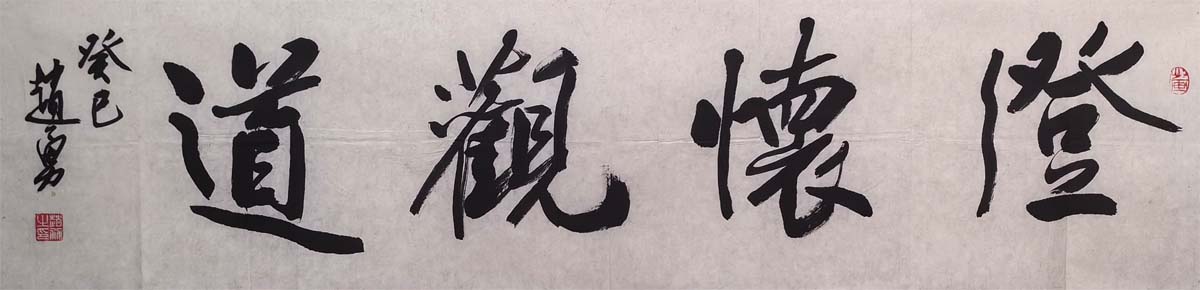 澄懷觀道
癸巳
趙勇